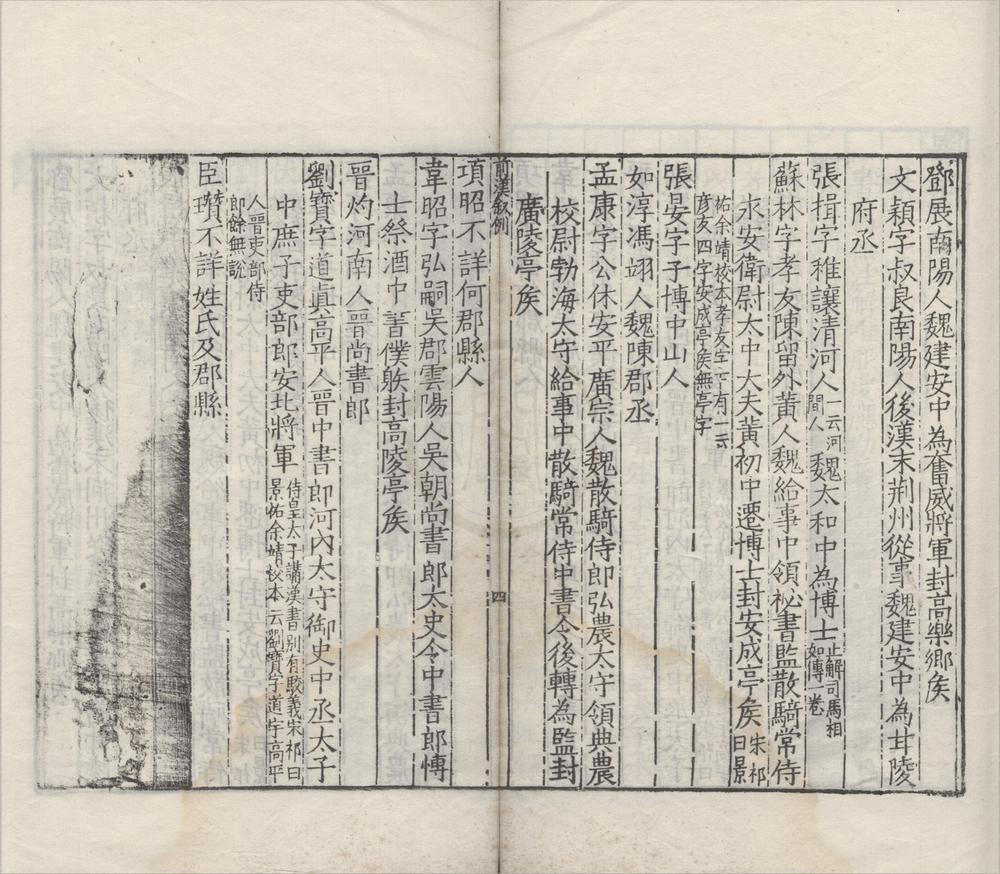 鄧展南陽人魏建安中為奮威將軍封高樂鄉矦
文穎字叔良南陽人後漢末荆州從事魏建安中為甘陵
府丞
張揖字稚讓清河人一云河間人魏太和中為博士止解司馬相如傳一卷
蘇林字孝友陳留外黃人魏給事中領祕書監散騎常侍
永安衛尉太中大夫黃初中遷博士封安成亭矦宋祁曰景
祐余靖校本孝友字下有一云
彦友四字安成亭矦無亭字
張晏字子博中山人
如淳馮翊人魏陳郡丞
孟康字公休安平廣宗人魏散騎侍郎弘農太守領典農
校尉勃海太守給事中散騎常侍中書令後轉為監封
廣陵亭矦
前漢敘例
四
項昭不詳何郡縣人
韋昭字弘嗣吳郡雲陽人吳朝尚書郎太史令中書郎博
士祭酒中書僕躲封高陵亭矦
晉灼河南人晉尚書郎
劉寶字道眞高平人晉中書郎河內太守御史中丞太子
中庶子吏部郎安北將軍侍皇太子講漢書别有駮義宋祁曰
景祐余靖校本云劉寶字道宇高平
人晉吏部侍
郎餘無說
臣瓚不詳姓氏及郡縣